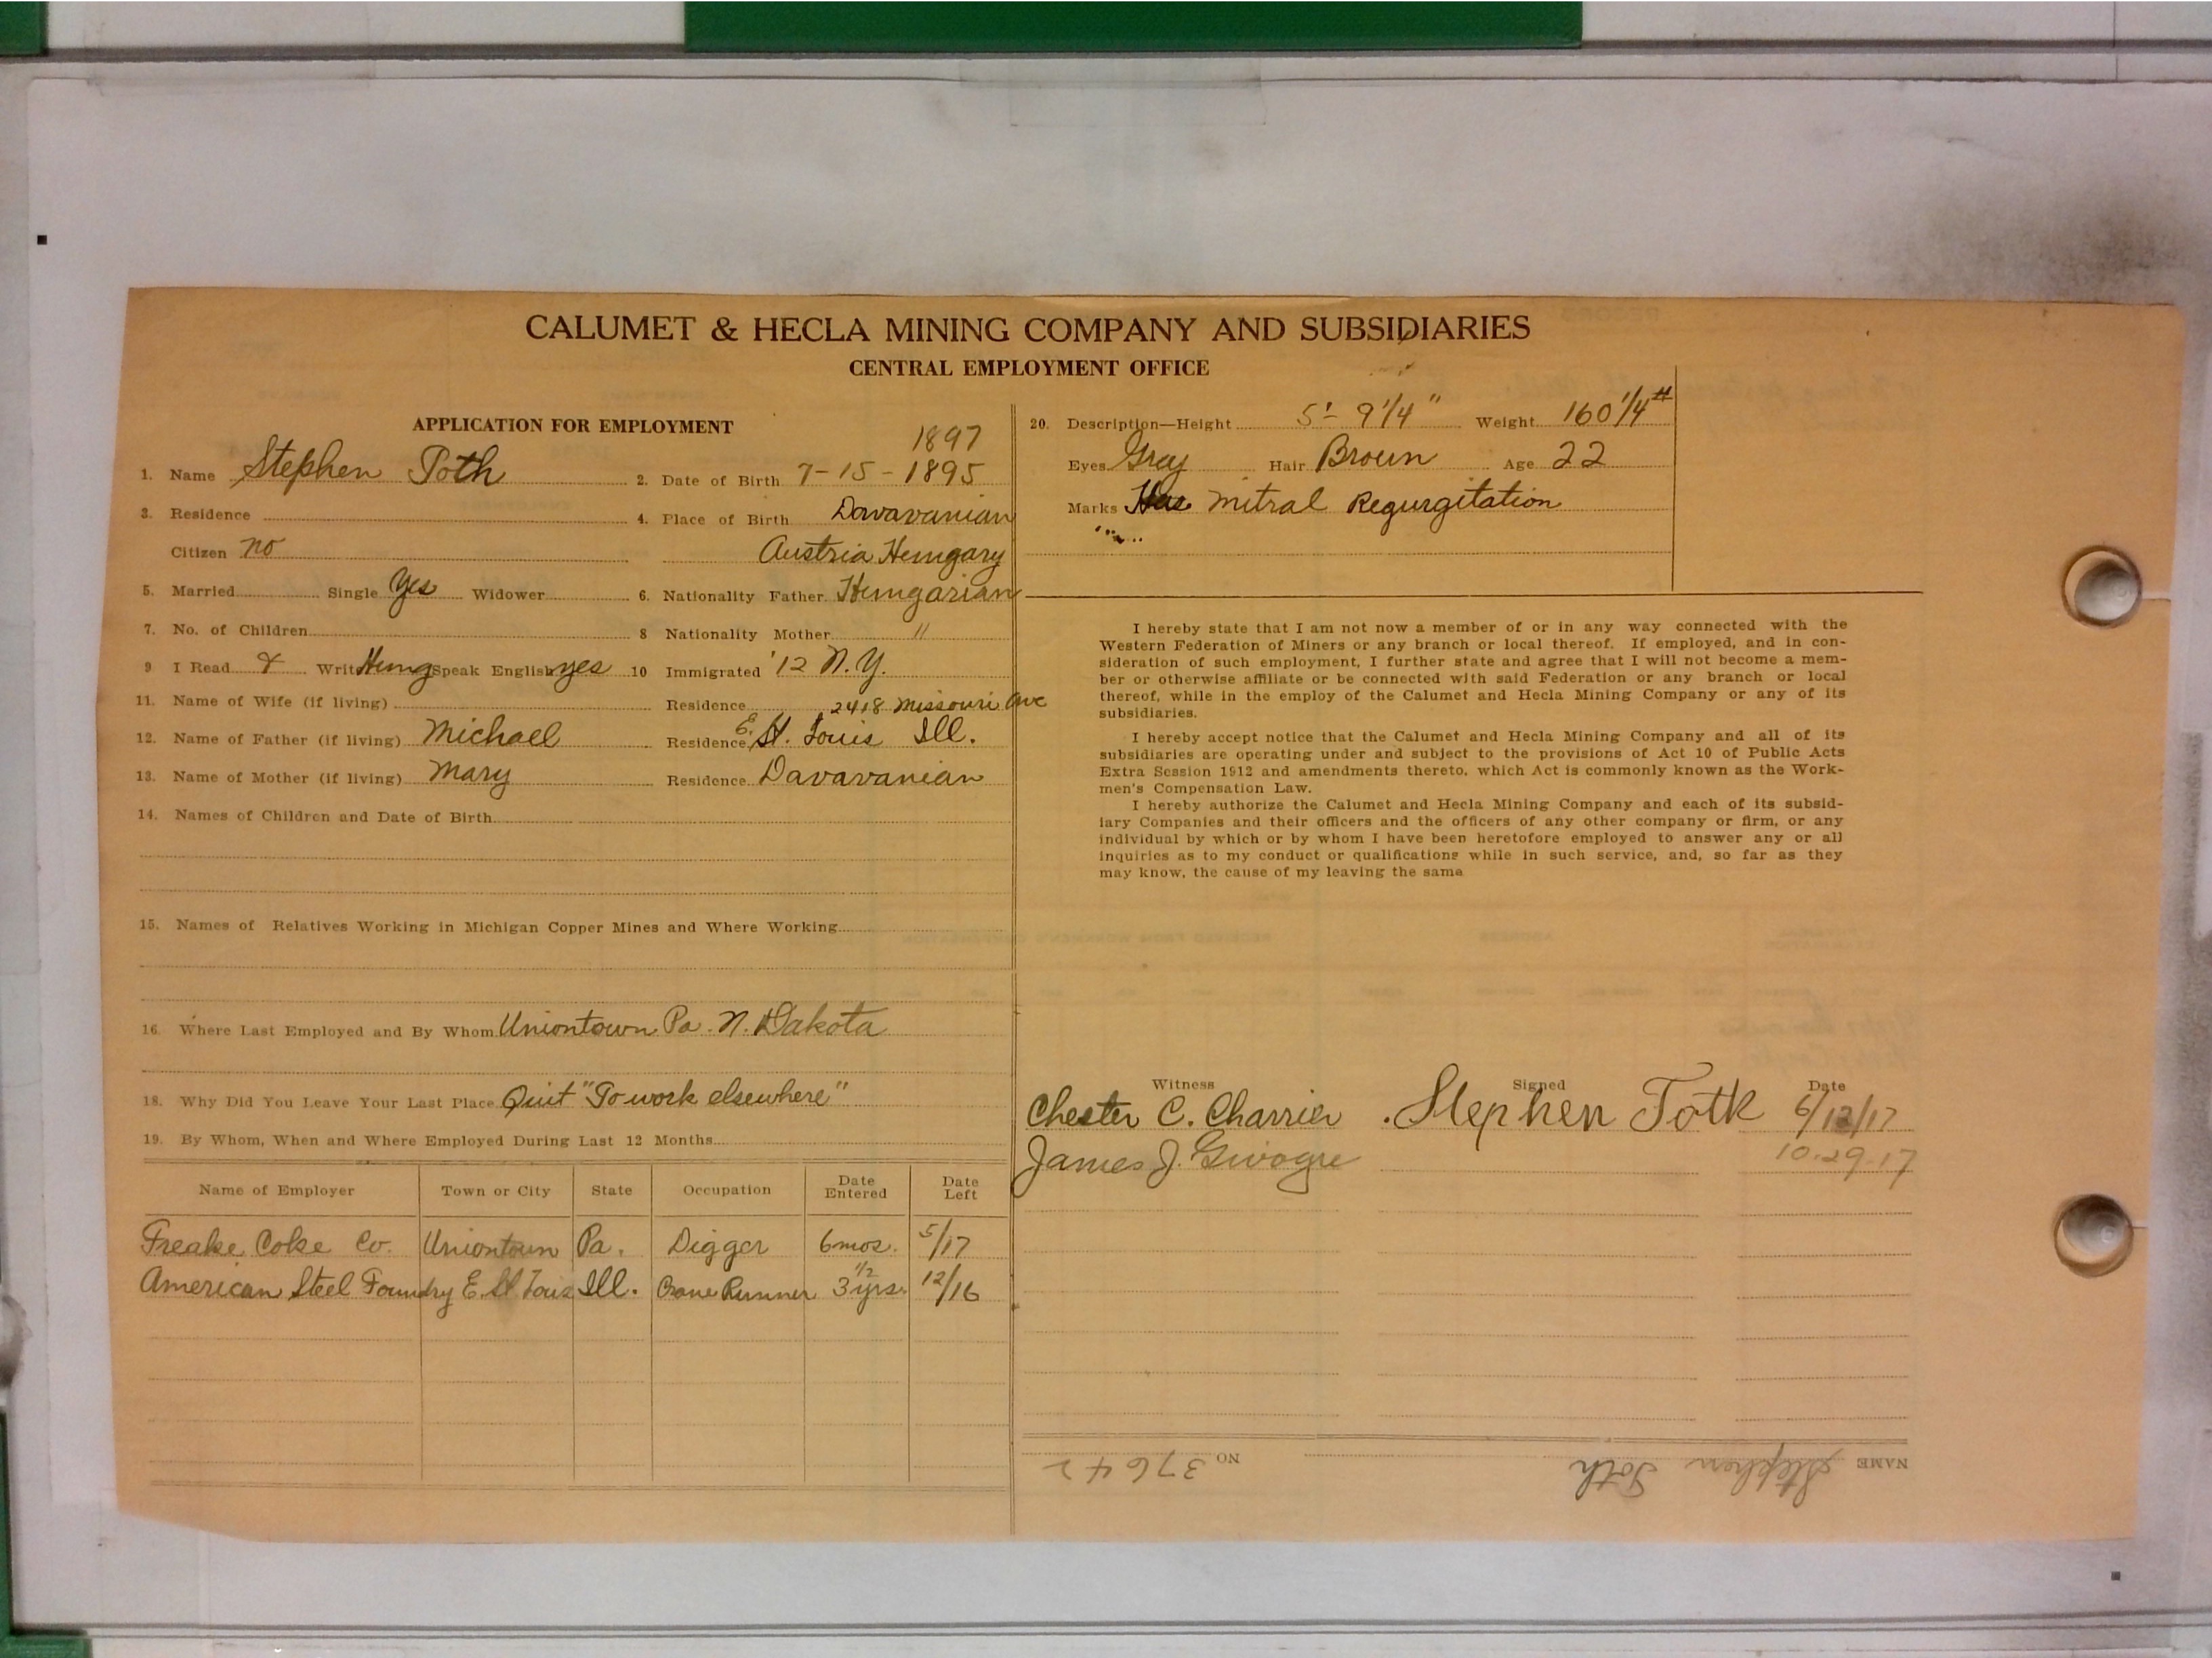 CALUMET & HECLA MINING COMPANY AND SUBSIDIARIES
CENTRAL EMPLOYMENT OFFICE
APPLICATION FOR EMPLOYMENT
1897
1. Name Stephen Toth 2. Date of Birth 7-15-1895
3. Residence 4. Place of Birth Davavanian
Citizen no Austria Hungary
5. Married Single Yes Widower 6. Nationality Father Hungarian
7. No. of Children 8 Nationality Mother "
9 I Read & Writ Hung Speak English yes 10 Immigrated '12 N.Y.
11. Name of Wife (if living) Residence 2418 Missouri Ave
12. Name of Father (if living) Michael Residence E. St. Louis Ill.
13. Name of Mother (if living) Mary Residence Davavanian
14. Names of Children and Date of Birth
15. Names of Relatives Working in Michigan Copper Mines and Where Working
16. Where Last Employed and By Whom Uniontown Pa. N. Dakota
18. Why Did You Leave Your Last Place Quit "To work elsewhere"
19. By Whom, When and Where Employed During Last 12 Months
Name of Employer Town or City State Occupation Date Entered Date Left
Freake Coke Co. Uniontown Pa. Digger 6 mos. 5/17
American Steel Foundry E. St Louis Ill. Crane Runner 3 1/2 yrs. 12/16
20. Description—Height 5'-9 1/4" Weight 160 1/4 #
Eyes Gray Hair Broun Age 22
Marks Has Mitral Regurgitation
I hereby state that I am not now a member of or in any way connected with the
Western Federation of Miners or any branch or local thereof. If employed, and in con-
sideration of such employment, I further state and agree that I will not become a mem-
ber or otherwise affiliate or be connected with said Federation or any branch or local
thereof, while in the employ of the Calumet and Hecla Mining Company or any of its
subsidiaries.
I hereby accept notice that the Calumet and Hecla Mining Company and all of its
subsidiaries are operating under and subject to the provisions of Act 10 of Public Acts
Extra Session 1912 and amendments thereto, which Act is commonly known as the Work-
men's Compensation Law.
I hereby authorize the Calumet and Hecla Mining Company and each of its subsid-
iary Companies and their officers and the officers of any other company or firm, or any
individual by which or by whom I have been heretofore employed to answer any or all
inquiries as to my conduct or qualifications while in such service, and, so far as they
may know, the cause of my leaving the same
Witness Signed Date
Chester C. Charrier Stephen Totk 6/12/17
James J. 10-29-17
NAME Stephen Toth NO 37642